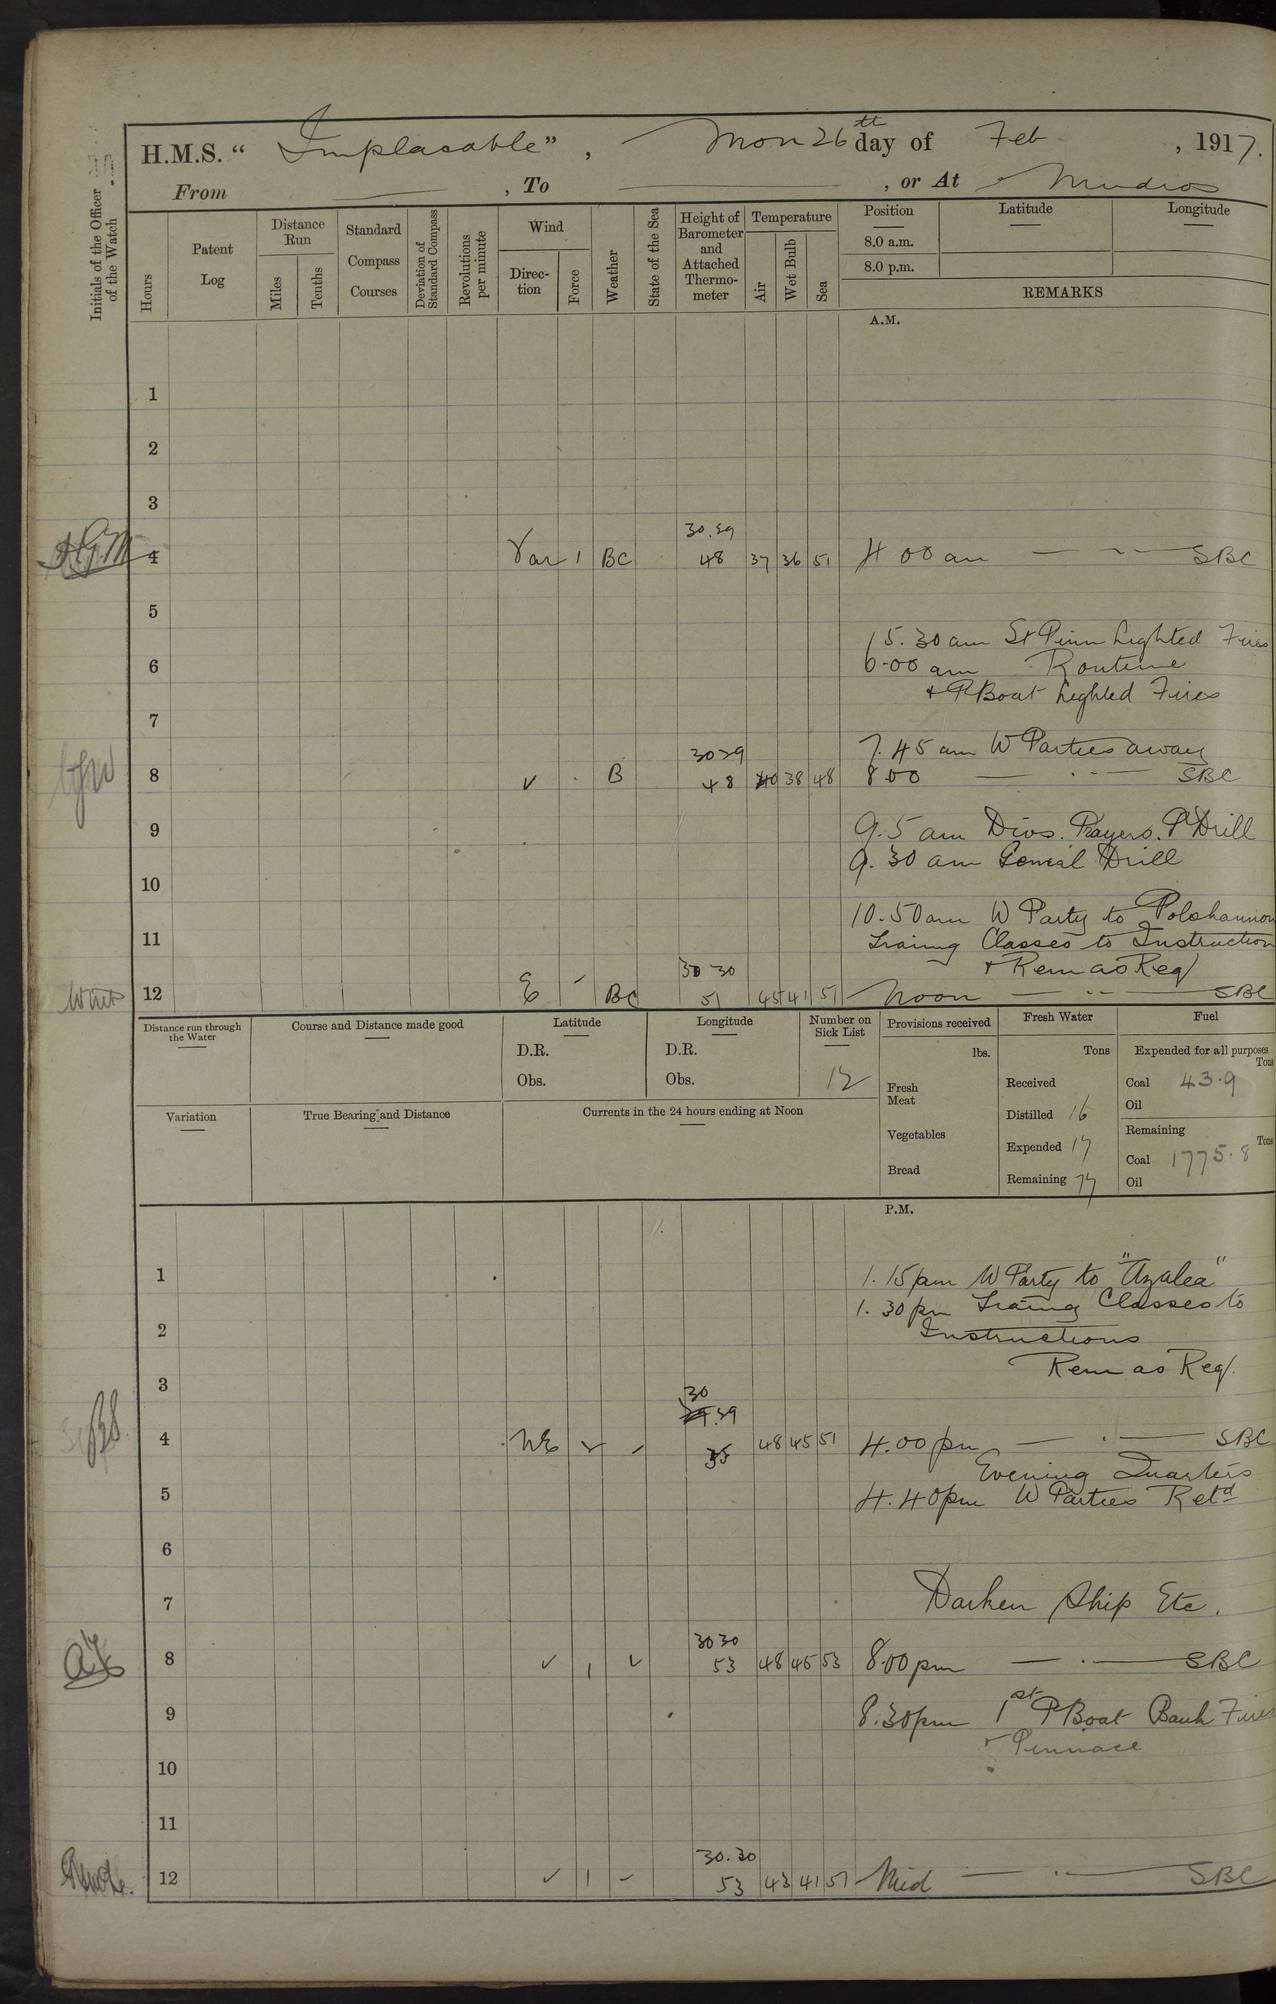 H.M.S. “ Implacable ” , Mon 26th day of Feb , 1917.
From , To , or At Mudros
Initials of the Officer of the Watch
Hours
Patent Log
Distance Run
Miles
Tenths
Standard Compass Courses
Deviation of Standard Compass
Revolutions per minute
Wind
Direction
Force
Weather
State of the Sea
Height of Barometer and Attached Thermometer
Temperature
Air
Wet Bulb
Sea
Position
8.0 a.m.
8.0 p.m.
Latitude
Longitude
REMARKS
A.M.
1
2
3
30.29
4 Var 1 BC 48 37 36 51 4 00 am SBC
5
5.30 am St Pinn Lighted Fires
6 6.00 am Routine
+ P Boat Lighted Fires
7
30 29 7.45 am W Parties away
8 ✓ . B 48 40 38 48 8 00 SBC
9 9.5 am Divs. Prayers. P Drill
9.30 am General Drill
10
10.50 am W Party to Polshannon
11 Traing Classes to Instruction
30 30 + Rem as Req
12 E BC 51 45 41 51 Noon SBC
Distance run through the Water
Course and Distance made good
Latitude
D.R.
Obs.
Longitude
D.R.
Obs.
Number on Sick List
12
Provisions received
lbs.
Fresh Meat
Vegetables
Bread
Fresh Water
Tons
Received
Distilled 16
Expended 17
Remaining 77
Fuel
Expended for all purposes
Tons
Coal 43.9
Oil
Remaining
Tons
Coal 1775.8
Oil
Variation
True Bearing and Distance
Currents in the 24 hours ending at Noon
P.M.
1 1.15 pm W Party to "Azalea"
1.30 pm Traing Classes to
2 Instructions
Rem as Req.
3
30
29.29
4 NE ✓ ✓ 48 45 51 4.00 pm SBC
Evening Quarters
5 4.40 pm W Parties Retd
6
7 Darken Ship Etc.
30 30
8 ✓ 1 ✓ 53 48 45 53 8.00 pm SBC
9 8.30 pm 1st P Boat Bank Fires
+ Pinnace
10
11
30.30
12 ✓ 1 53 43 41 51 Mid SBC